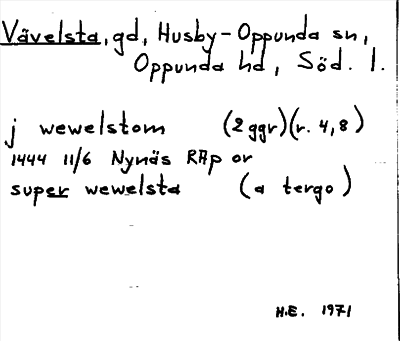 Vävelsta, gd, Husby-Oppunda sn,
Oppunda hd, Söd. l.
j wewelstom (2 ggr)(r. 4,8)
1444 11/6 Nynäs RAp or
super wewelsta (a tergo)
H.E. 1971